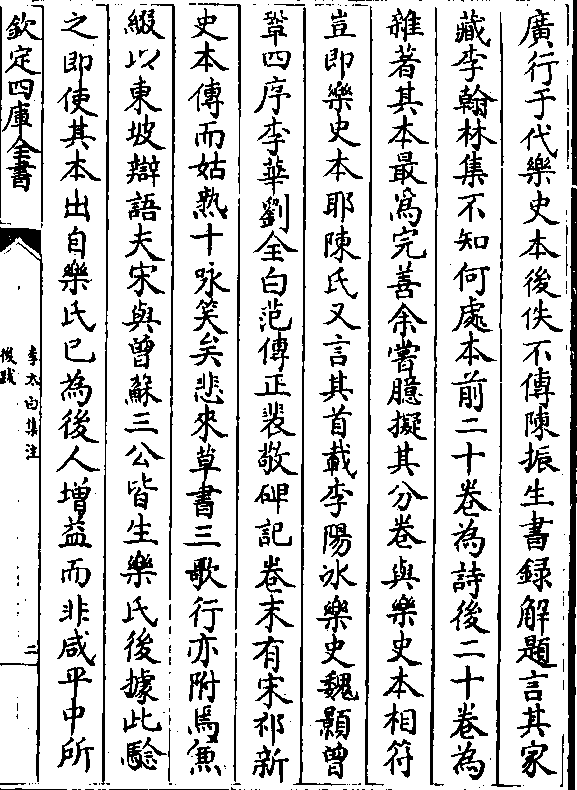 廣行于代樂史本後佚不傳陳振生書録解題言其家
藏李翰林集不知何處本前二十卷為詩後二十卷為
雜著其本最爲完善余嘗臆擬其分卷與樂史本相符
豈即樂史本耶陳氏又言其首載李陽冰樂史魏顥曾
鞏四序李華劉全白范傳正裴敬碑記卷末有宋祁新
史本傳而姑熟十咏笑矣悲來草書三歌行亦附焉兼
綴以東坡辯語夫宋與曾蘇三公皆生樂氏後據此驗
之即使其本出自樂氏已為後人增益而非咸平中所
欽定四庫全書
李太白集注
後跋
二